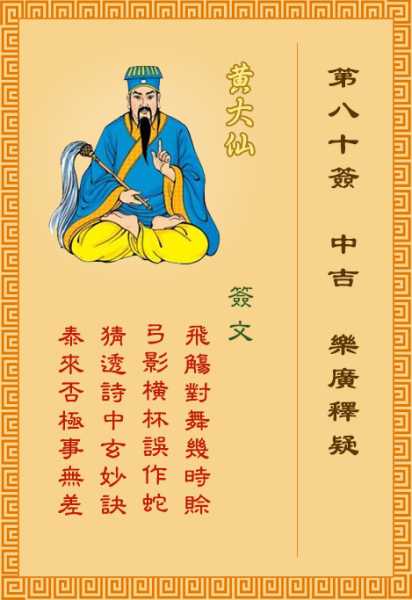 第八十簽 中吉 樂廣釋疑
黄大仙
簽文
飛觴對舞幾時賒
弓影橫杯誤作蛇
猜透詩中玄妙訣
泰來否極事無差